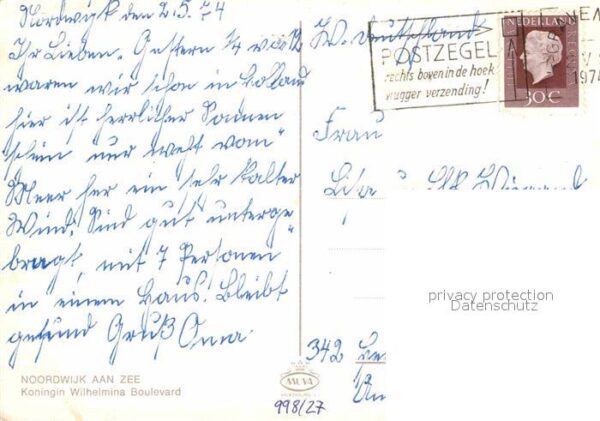 Nordwyk den 2.5.74
Ihr Lieben. Gestern 1/4 vor 12
waren wir schon in Holland
hier ist herrlicher Sonnen
schein nur weht vom
Meer her ein sehr kalter
Wind. Sind gut unterge
bragt, mit 7 Personen
in einem Haus. Bleibt
gesund Gruß Oma
NOORDWIJK AAN ZEE
Koningin Wilhelmina Boulevard
W. Deutschland
POSTZEGEL
rechts boven in de hoek
vlugger verzending!
NEDERLAND
30 C
1974
Frau
privacy protection
Datenschutz
342
MUVA
998/27